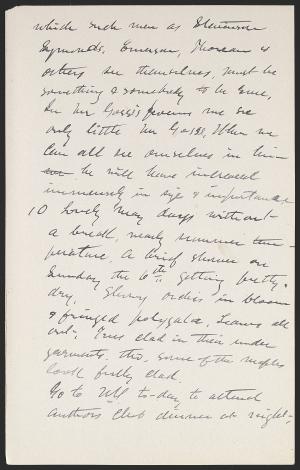 which such men as Stevenson
Symonds, Emerson, Thoreau &
others see themselves, must be
something & somebody to be sure,
In Mr Goss's poems we see
only little Mr Goss. When we
can all see ourselves in him
he will have increased
immensely in size & importance
10 Lovely May days without
a breath, nearly summer tem-
perature. A brief shower on
Sunday the 6th. Getting pretty
dry. Showy orchis in bloom
& fringed polygala. Leaves all
out. Trees clad in their under
garments, tho. some of the maples
look fully clad.
Go to N.Y. to-day to attend
Authors Club dinner at night.